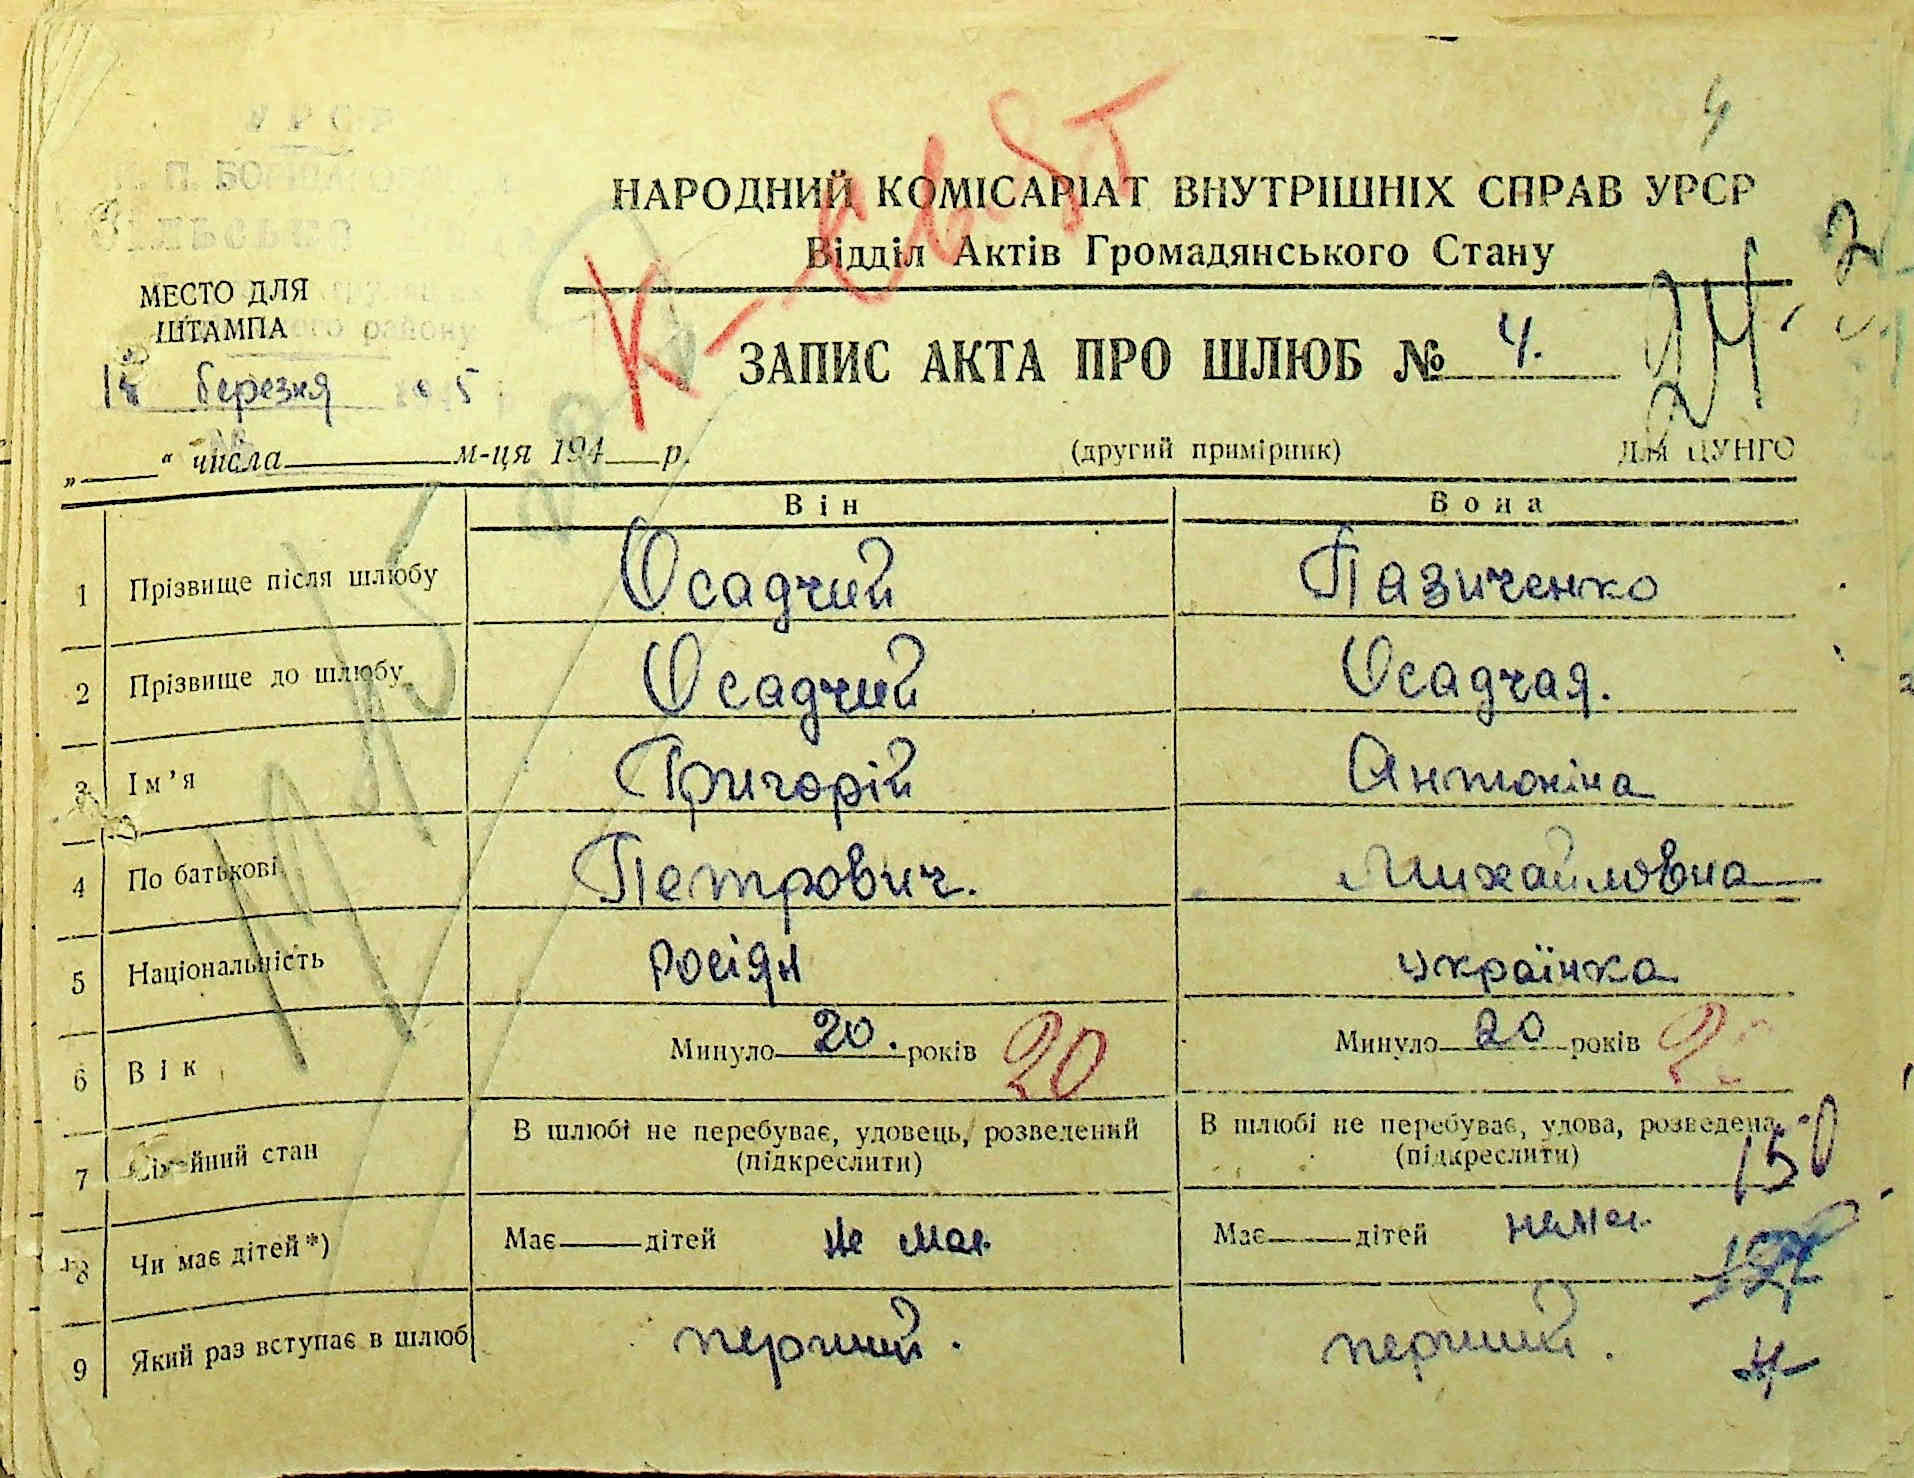 4
К-Свт
НАРОДНИЙ КОМІСАРІАТ ВНУТРІШНІХ СПРАВ УРСР
Відділ Актів Громадянського Стану
МЕСТО ДЛЯ
ШТАМПА
району
березня 5
ЗАПИС АКТА ПРО ШЛЮБ № 4.
„ “ числа м-ця 194 р.
(другий примірник)
Для ЦУНГО
Він Вона
1 Прізвище після шлюбу Осадчий Пазиченко
2 Прізвище до шлюбу Осадчий Осадчая.
3 Ім’я Григорій Антоніна
4 По батькові Петрович. Михайловна
5 Національність росіян українка
6 Вік Минуло 20. років 20 Минуло 20 років
7 Сімейний стан В шлюбі не перебуває, удовець, розведений В шлюбі не перебуває, удова, розведена
(підкреслити) (підкреслити)
150
8 Чи має дітей*) Має дітей не має. Має дітей немає.
9 Який раз вступає в шлюб перший. перший.